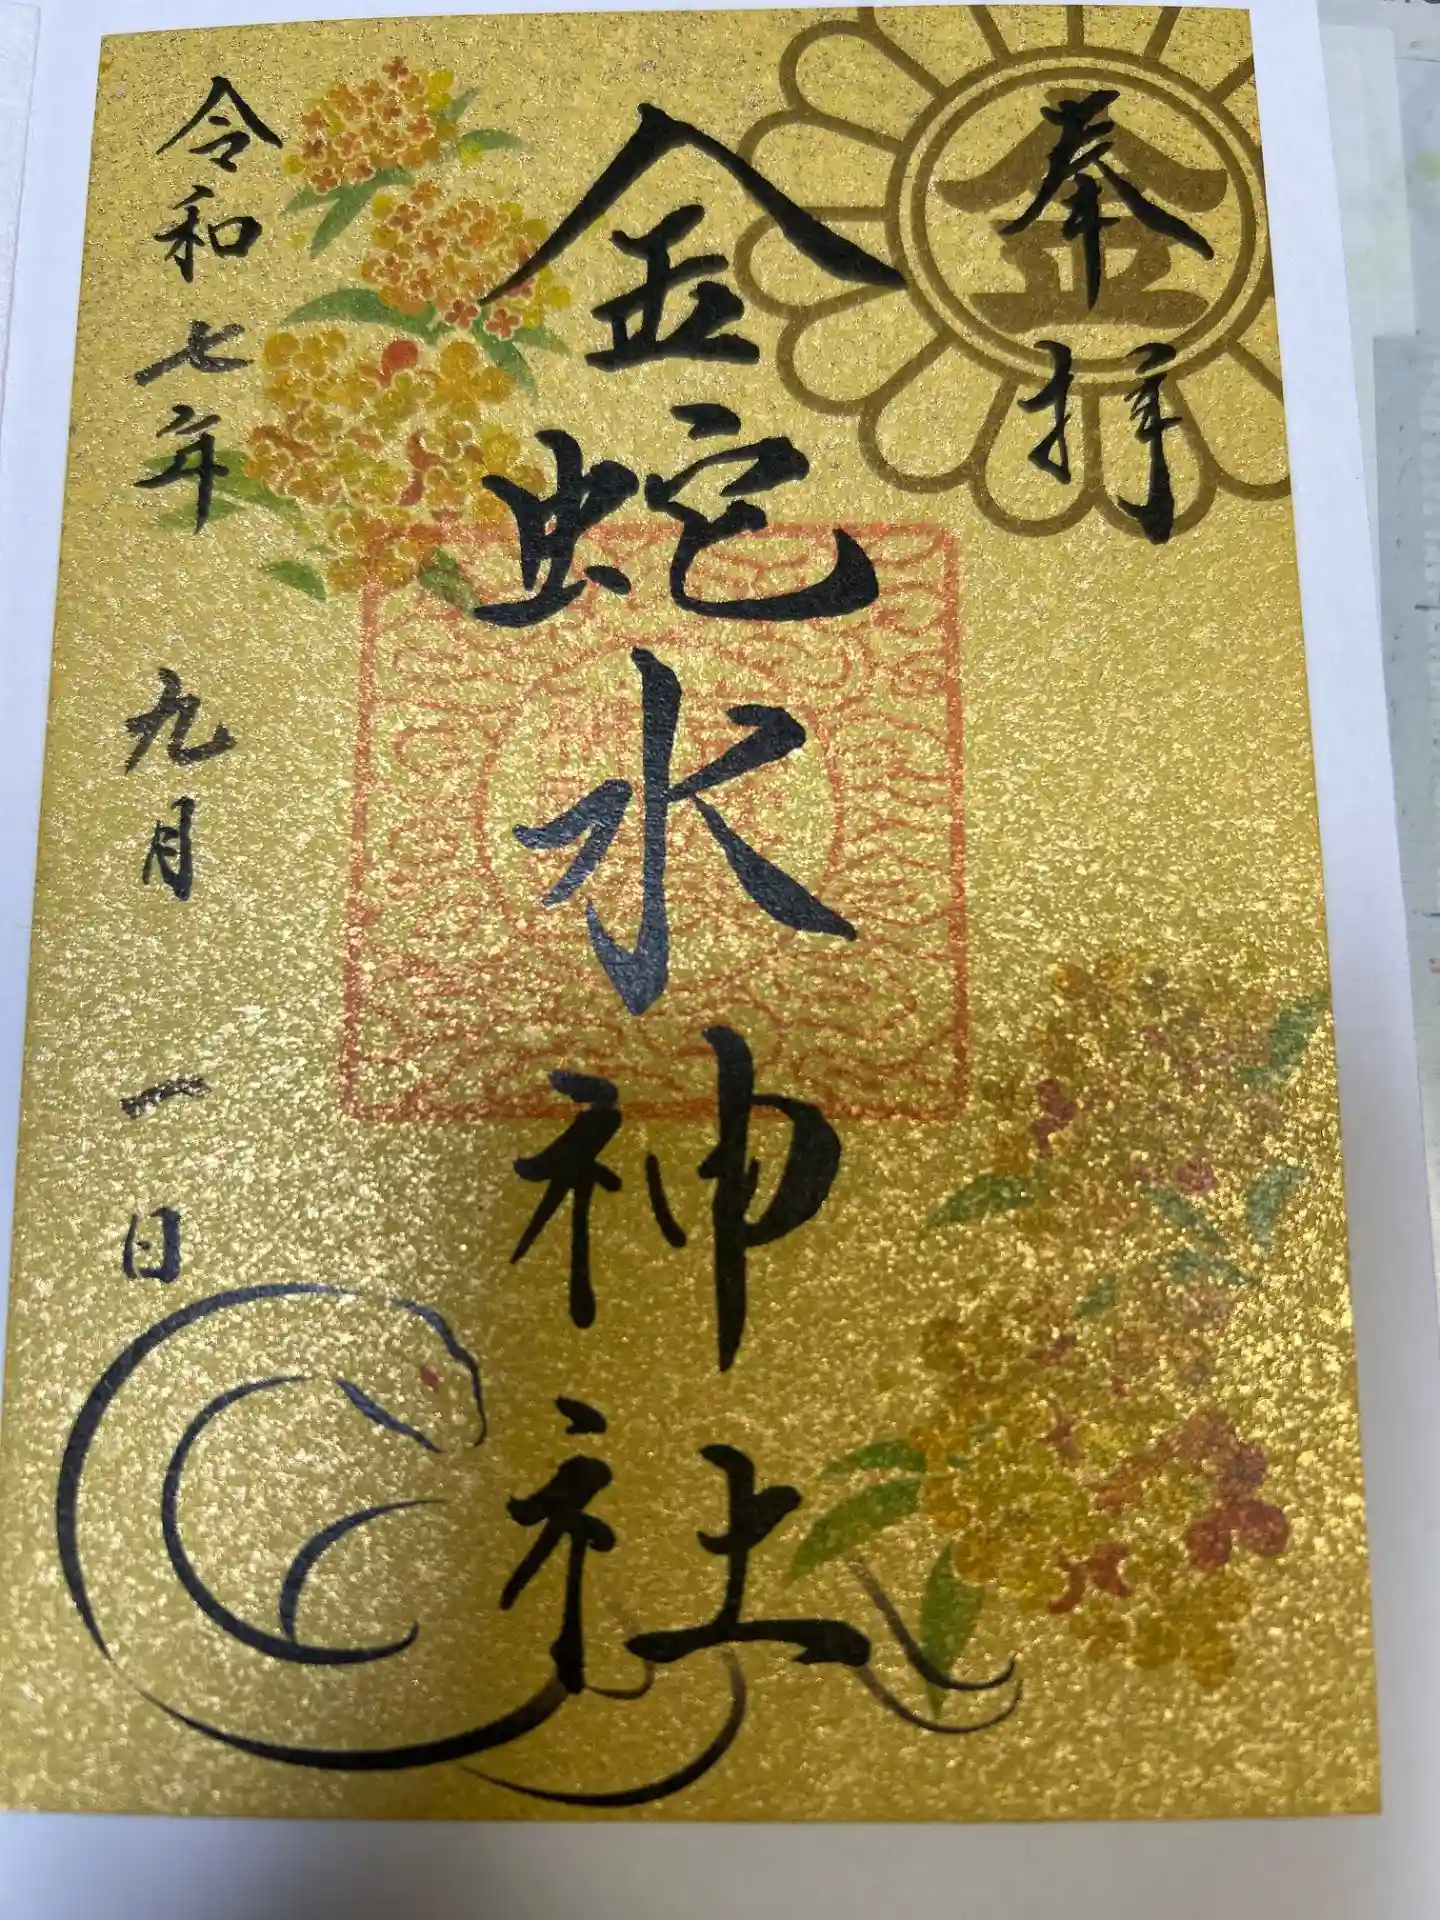 奉拝
金
金蛇水神社
令和七年 九月 一日